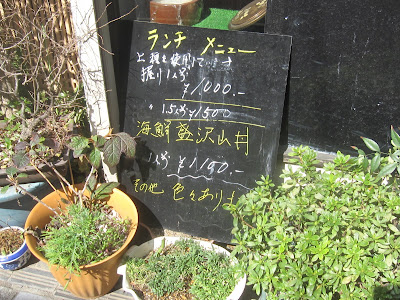 ランチ メニュー
上握を使用しています
握り1人号
¥1,000.-
〃 1.5人号¥1500
海鮮盛沢山丼
1人号 ¥1,150.-
その他 色々あります